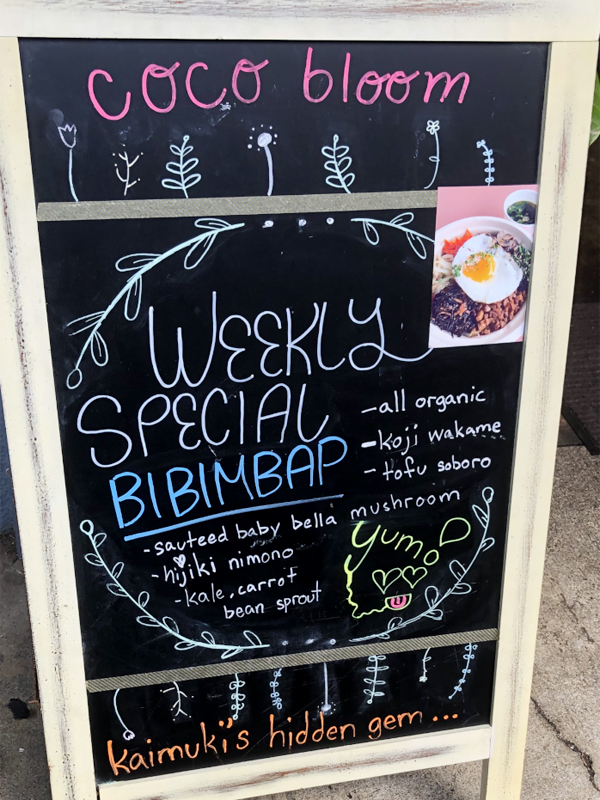 coco bloom
WEEKLY
SPECIAL
BIBIMBAP
-all organic
-koji wakame
-tofu soboro
-sauteed baby bella mushroom
-hijiki nimono
-kale, carrot
bean sprout
yum
kaimuki's hidden gem...